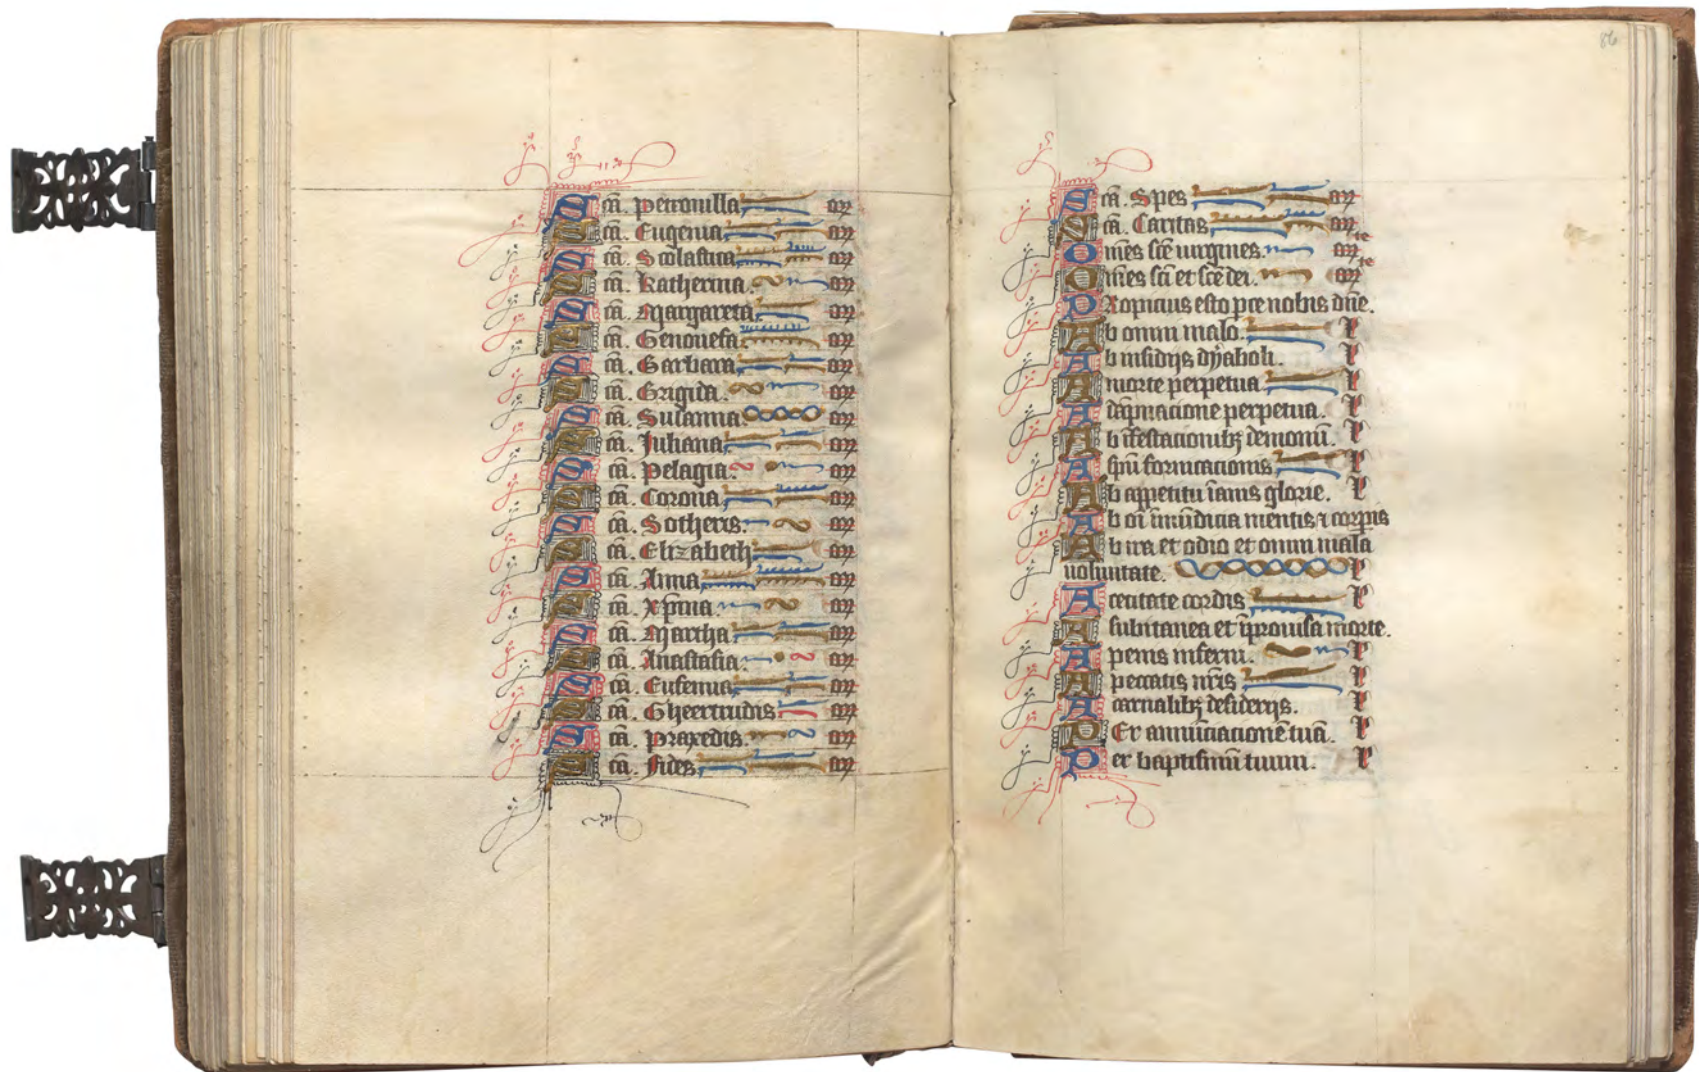 Scā. Petronilla or
Scā. Eugenia or
Scā. Scolastica or
Scā. Katherina. or
Scā. Margareta. or
Scā. Genouefa. or
Scā. Barbara. or
Scā. Brigida. or
Scā. Susanna. or
Scā. Iuliana. or
Scā. Pelagia. or
Scā. Corona. or
Scā. Sotheris. or
Scā. Elizabeth. or
Scā. Anna or
Scā. Xp̄ina or
Scā. Martha or
Scā. Anastasia. or
Scā. Eufemia. or
Scā. Gheertrudis or
Scā. Praxedis. or
Scā. Fides. or
86
Scā. Spes or
Scā. Caritas. or
Om̄es scē uirgines. or
Om̄es scī et scē dei. or
PRopicius esto pce nobis dn̄e.
Ab omni malo. l
Ab insidijs dyaboli.
A morte perpetua l
A dāpnacione perpetua. l
Ab īfestacionibꝫ demonū. l
A spū fornicacionis l
Ab appetitu īanis glorie. l
Ab oī īmūdicia mentis ⁊ corpis
Ab ira et odio et omni mala
uoluntate. l
A cecitate cordis l
A subitanea et īprouisa morte.
A penis inferni. l
A peccatis nr̄is l
A carnalibꝫ desiderijs. l
PEr annūciacionē tuā. l
Per baptismū tuum. l